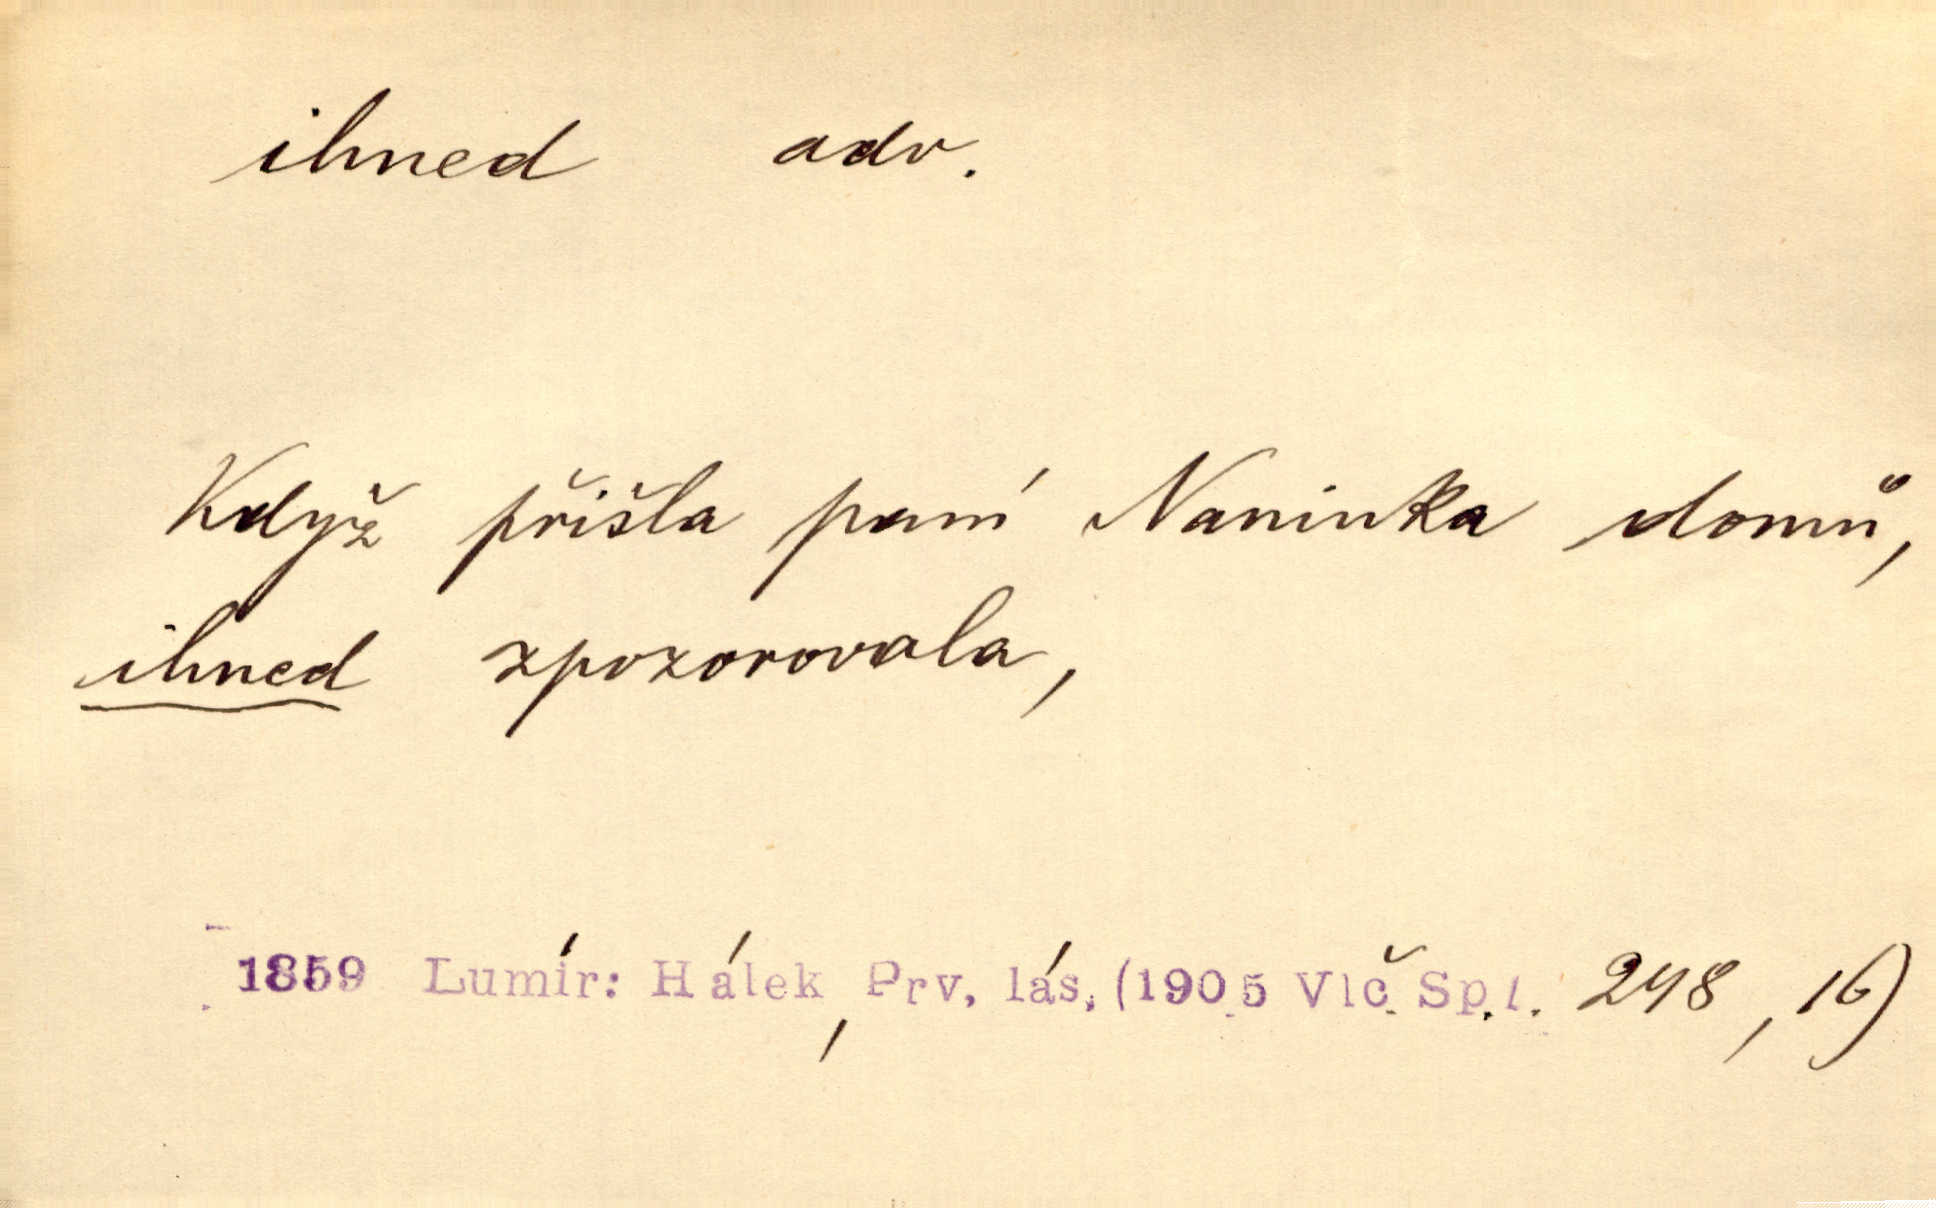 ihned adv.
Když přišla paní Naninka domů,
ihned zpozorovala,
1859 Lumír: Hálek, Prv. lás. (1905 Vlč. Sp. 1. 248, 16)